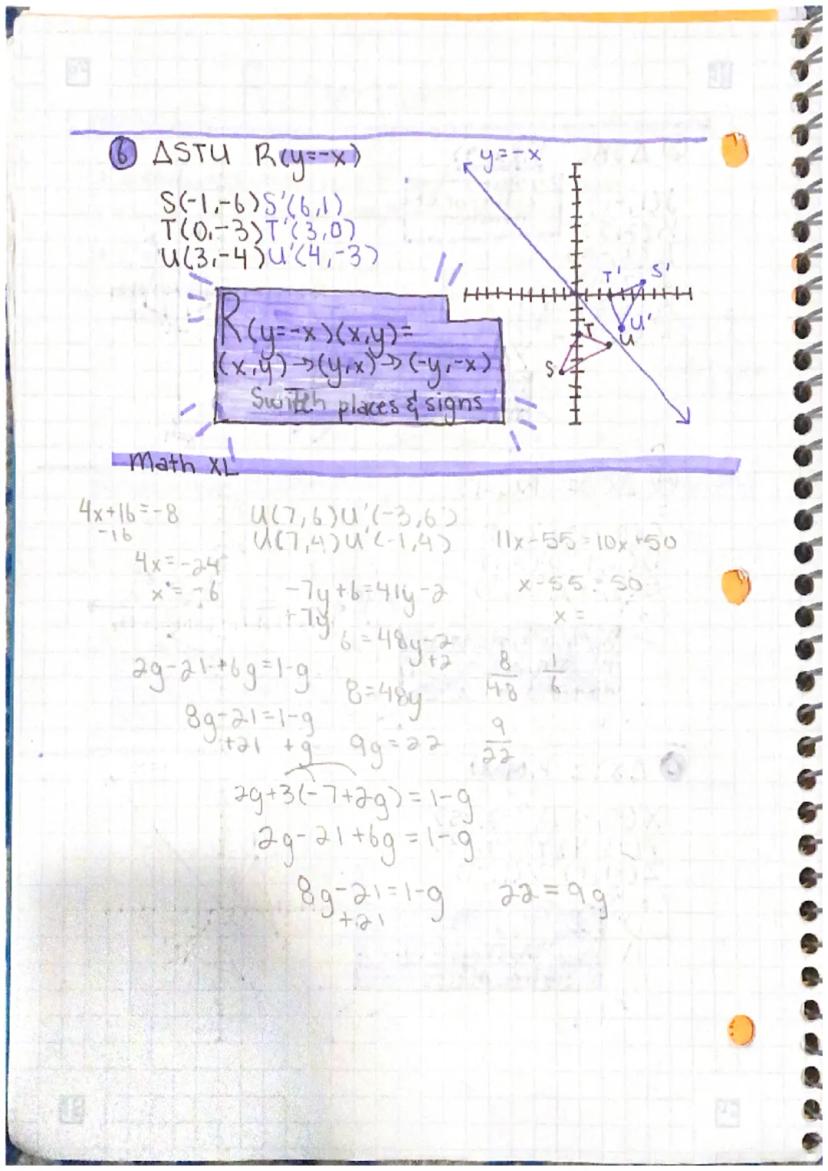 6 △STU R(y=-x)
S(-1,-6) S'(6,1)
T(0,-3) T'(3,0)
U(3,-4) U'(4,-3)
y=-x
T' S'
U'
T U
S
R(y=-x)(x,y)=
(x,y)→(y,x)→(-y,-x)
Switch places & signs
Math XL
4x+16=-8
-16
4x=-24
x=-6
U(7,6) U'(-3,6)
U(7,4) U'(-1,4)
11x-55=10x+50
x-55=50
x=
-7y+6=41y-2
+7y
6=48y-2
+2
8=48y
8/48 1/6
2g-21+6g=1-g
8g-21=1-g
+21 +g
9g=22
9/22
2g+3(-7+2g)=1-g
2g-21+6g=1-g
8g-21=1-g 22=9g
+21